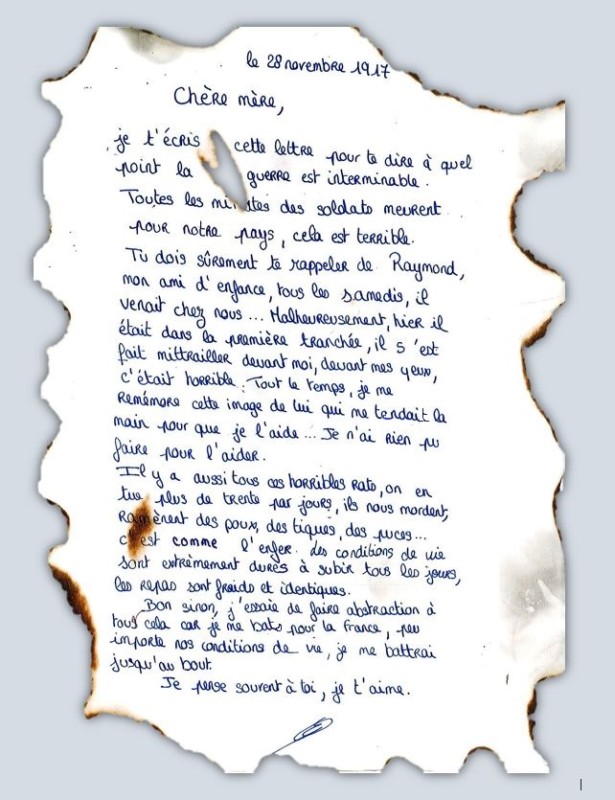 le 28 novembre 1917
Chère mère,
je t'écris cette lettre pour te dire à quel
point la guerre est interminable.
Toutes les minutes des soldats meurent
pour notre pays, cela est terrible.
Tu dois sûrement te rappeler de Raymond,
mon ami d'enfance, tous les samedis, il
venait chez nous... Malheureusement, hier il
était dans la première tranchée, il s'est
fait mittrailler devant moi, devant mes yeux,
c'était horrible. Tout le temps, je me
Remémore cette image de lui qui me tendait la
main pour que je l'aide... Je n'ai rien pu
faire pour l'aider.
Il y a aussi tous ces horribles rats, on en
tue plus de trente par jours, ils nous mordent,
Ramènent des poux, des tiques, des puces...
c'est comme l'enfer. des conditions de vie
sont extrèmement dures à subir tous les jours,
les repas sont froids et identiques.
Bon sinon, j'essaie de faire abstraction à
tous cela car je me bats pour la france, peu
importe nos conditions de vie, je me battrai
jusqu'au bout.
Je pense souvent à toi, je t'aime.